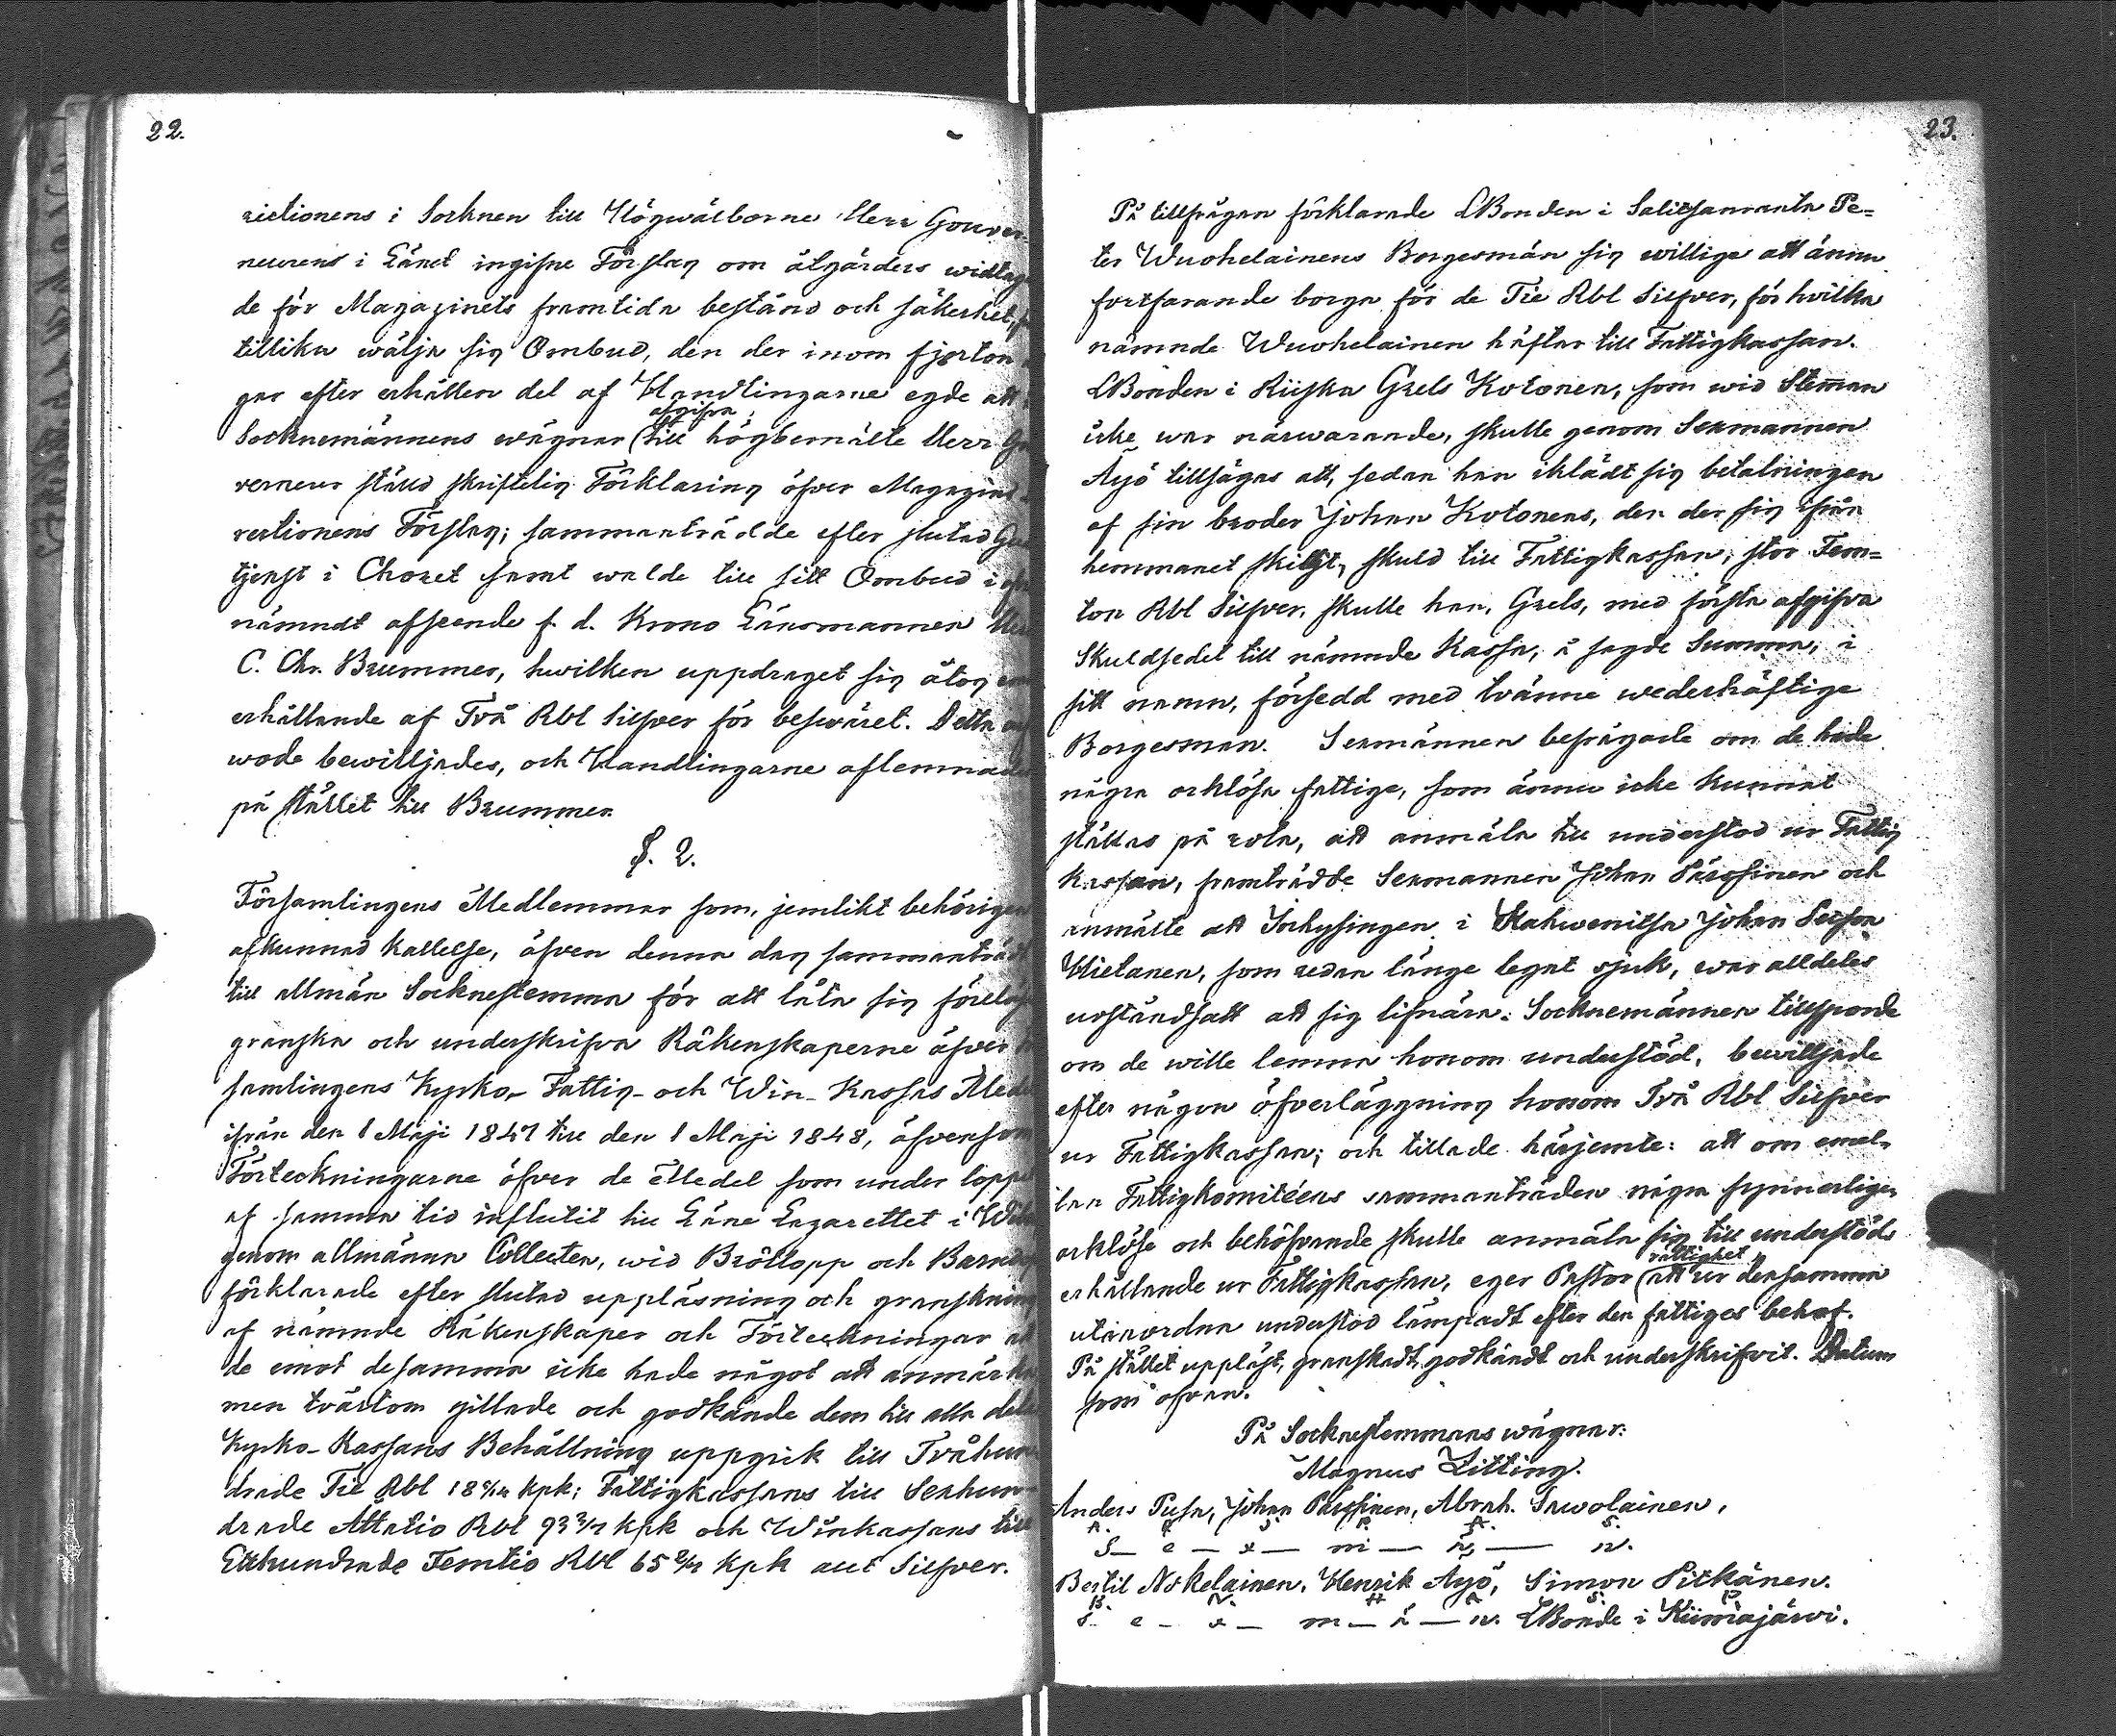 22.
rectionens i Socknen till Högwälborne Herr Gouver-
neurens i Länet ingifne Förslag om åtgärders widtagan
de för Magazinets framtida bestånd och säkerhet,
tillika wälja sig Ombud, den der inom fjorton
gar efter erhållen del af Handlingarne egde att
afgifva
Socknemännens wägnar (till högbemälte Herr Gou
verneur ställd skriftelig Förklaring öfver Magazins
rectionens Förslag; sammanträdde efter slutad Guds
tjenst i Choret samt walde till sitt Ombud i of
nämndt afseende f. d. Krono Länsmannen Herr
C. Chr. Brummer, hwilken uppdraget sig åtog emot
erhållande af Två Rbl Silfver för beswäret. Detta ar
wode bewilljades, och Handlingarne aflemnades
på stället till Brummer.
§. 2.
Församlingens Medlemmar som, jemlikt behörigen
afkunnad Kallelse, äfven denna dag sammanträdt
till allmän Sockenstemma för att låta sig föreläsas
granska och underskrifva Räkenskaperne öfver
samlingens Kyrko- Fattig- och Win- Kassas Medel
ifrån den 1 Maji 1847 till den 1 Maji 1848, äfvensom
Förteckningarne öfver de Medel som under loppet
af samma tid influtit till Läne Lazarettet i
genom allmänna Collecten, wid Bröllopp och Barndop
förklarade efter slutad uppläsning och granskning
af nämnde Räkenskaper och Förteckningar att
de emot desamma icke hade något att anmärka
men tvärtom gillade och godkände dem till alla delar
Kyrko- Kassans Behållning uppgick till Tvåhun
drade Tie Rbl 18 kpk; Fattigkassans till Sexhun-
drade Åttatio Rbl 93 2/7 kpk och Winkassans till
Etthundrade Femtio Rbl 65 2/7 kpk allt Silfver.
23.
På tillfrågan förklarade LBonden i Salitsanranta Pe-
ter Wuohelainens Borgesmän sig willige att ännu
fortfarande borga för de Tie Rbl Silfver, för hvilka
nämnde Wuohelainen häftar till Fattigkassan.
LBonden i Riiska Grels Kotonen, som wid Stemman
icke war närwarande, skulle genom Sexmannen
Äyö tillsägas att, sedan han iklädt sig betalningen
af sin broder Johan Kotonens, den der sig ifrån
hemmanet skiljt, skuld till Fattigkassan, stor Fem-
ton Rbl Silfver, skulle han, Grels, med första afgifva
Skuldsedel till nämnde Kassa, å sagde Summa, i
sitt namn, försedd med tvänne wederhäftige
Borgesman. Sexmännen befrågade om de hade
några orklösa fattige, som ännu icke kunnat
ställas på rota, att anmäla till understöd ur Fattig
kassan, framträdde Sexmannen Johan Pärssinen och
anmälte att Inhysingen i Hakwenitsa Johan Persson
Hietanen, som redan länge legat sjuk, war alldeles
urståndsatt att sig lifnära. Socknemännen tillsporde
om de wille lemna honom understöd, bewilljade
efter någon öfverläggning honom Två Rbl Silfver
ur Fattigkassan; och tillade härjemte: att om emel-
lan Fattigkomitéens sammanträden några synnerligen
orklöse och behöfvande skulle anmäla sig till understöds
rättighet
erhållande ur Fattigkassan, eger Pastor (att ur densamma
utanordna understöd lämpadt efter den fattiges behof.
På stället uppläst, granskadt, godkändt och underskrifvit. Datum
som ofvan.
På Sockenstemmans wägnar:
Magnus Zitting.
Anders Pusa, Johan Pärssinen, Abrah. Sawolainen,
A. P. J. P. A. S.
S — e — x — m — ä — n.
Bertil Nokelainen, Henrik Äyö, Simon Pitkänen.
B. N. H. Ä. S. P.
S — e — x — m — ä — n. LBonde i Kiimajärwi.